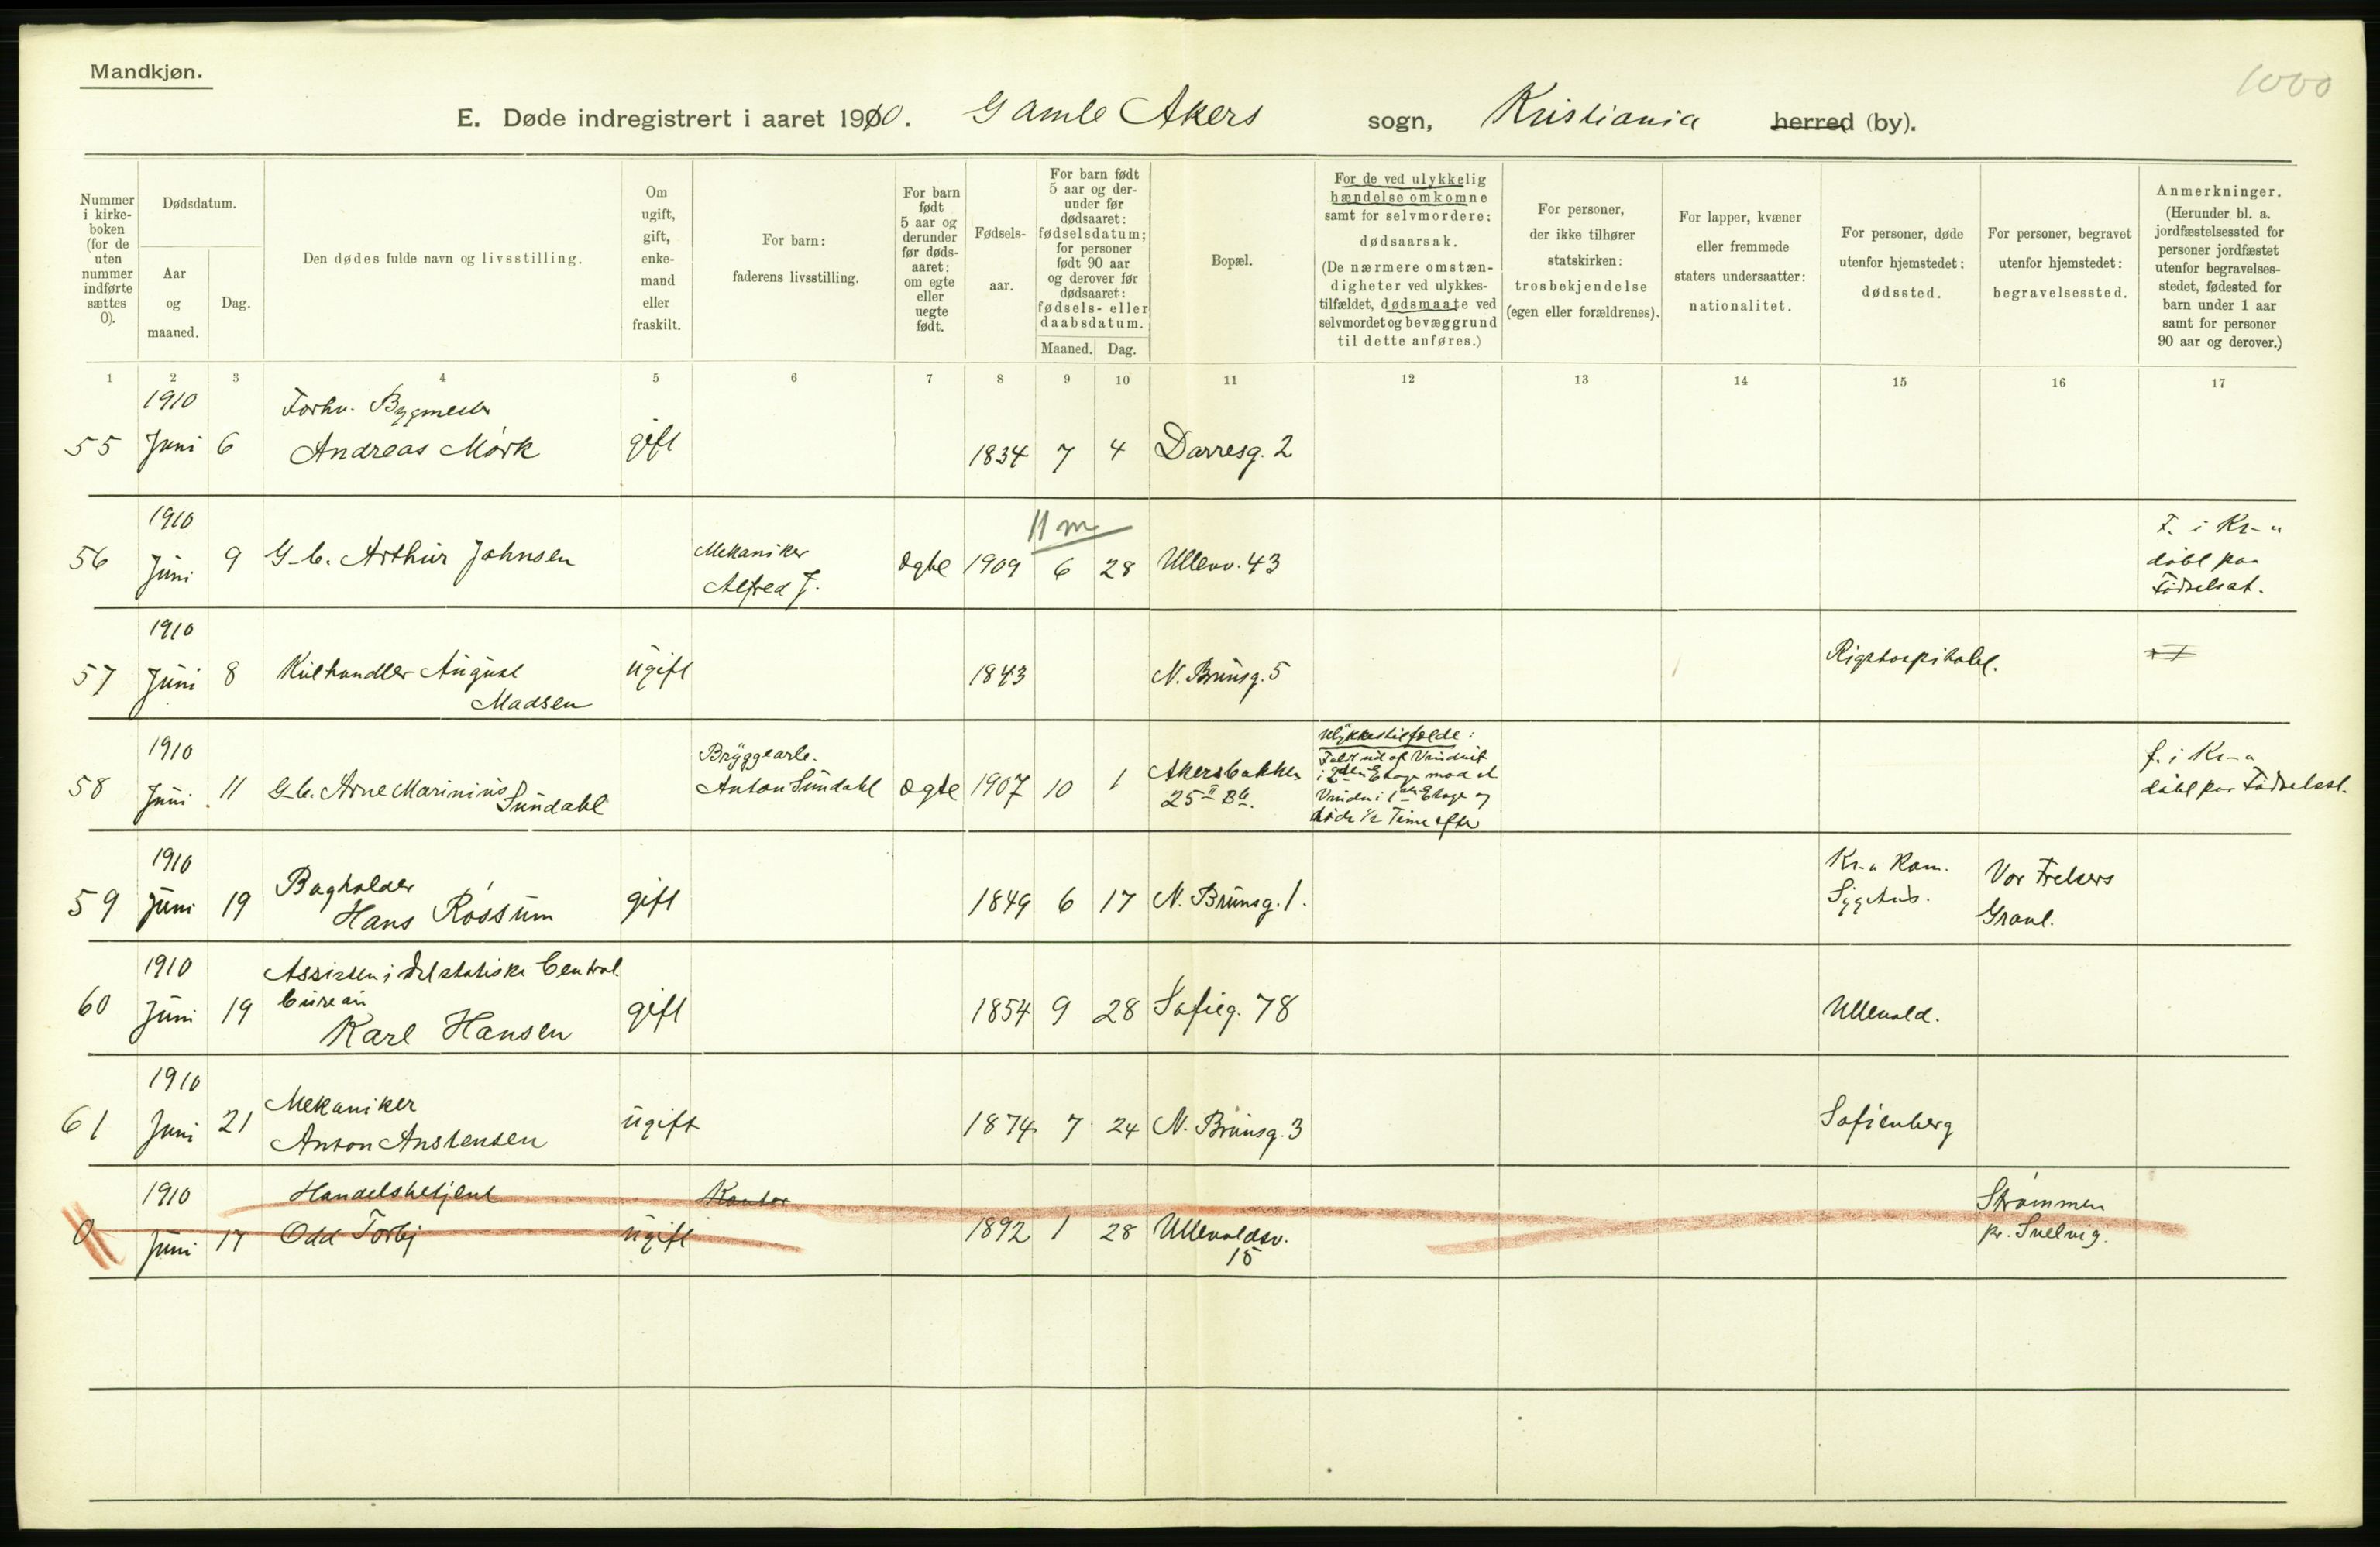 Mandkjøn.
1000
E. Døde indregistrert i aaret 1910. Gamle Akers sogn, Kristiania herred (by).
Nummer i kirke-boken (for de uten nummer indførte sættes 0).
Dødsdatum.
Aar og maaned.
Dag.
Den dødes fulde navn og livsstilling.
Om ugift, gift, enke-mand eller fraskilt.
For barn: faderens livsstilling.
For barn født 5 aar og derunder før døds-aaret: om egte eller uegte født.
Fødsels-aar.
For barn født 5 aar og der-under før dødsaaret: fødselsdatum; for personer født 90 aar og derover før dødsaaret: fødsels- eller daabsdatum.
Maaned. Dag.
Bopæl.
For de ved ulykkelig hændelse omkomne samt for selvmordere: dødsaarsak. (De nærmere omstæn-digheter ved ulykkes-tilfældet, dødsmaate ved selvmordet og bevæggrund til dette anføres.)
For personer, der ikke tilhører statskirken: trosbekjendelse (egen eller forældrenes).
For lapper, kvæner eller fremmede staters undersaatter: nationalitet.
For personer, døde utenfor hjemstedet: dødssted.
For personer, begravet utenfor hjemstedet: begravelsessted.
Anmerkninger. (Herunder bl. a. jordfæstelsessted for personer jordfæstet utenfor begravelses-stedet, fødested for barn under 1 aar samt for personer 90 aar og derover.)
1 2 3 4 5 6 7 8 9 10 11 12 13 14 15 16 17
1910 Forhv. Bygmester
55 Juni 6 Andreas Mörk gift 1834 7 4 Darresg. 2
1910 11 m F. i Kr-a
56 Juni 9 G-b. Arthur Johnsen Mekaniker Alfred J. ægte 1909 6 28 Ullevv. 43 døbt paa Födselsst.
1910
57 Juni 8 Kulhandler August Madsen ugift 1843 N. Brunsg. 5 Rigshospitalet.
1910 Bryggearb.
58 Juni 11 G-b. Arne Marinius Sundahl Anton Sundahl ægte 1907 10 1 Akersbakken 25 II Bb.
Ulykkestilfælde:
Faldt ud af Vinduet
i 2den Etage mod et
Vindu i 1ste Etage og
döde 1/2 Time efter
f. i Kr-a
döbt paa Födselsst.
1910 Bogholder
59 Juni 19 Hans Rossum gift 1849 6 17 N. Brunsg. 1. Kr-a Kom. Sygehus. Vor Frelsers Gravl.
1910 Assisten i det statiske Central
bureau
60 Juni 19 Karl Hansen gift 1854 9 28 Sofieg. 78 Ullevold.
1910 Mekaniker
61 Juni 21 Anton Anstensen ugift 1874 7 24 N. Brunsg. 3 Sofienberg
1910 Handelsbetjent Kontor Strömmen
0 Juni 17 Odd Torbj ugift 1892 1 28 Ullevoldsv. 15 pr. Svelvig.